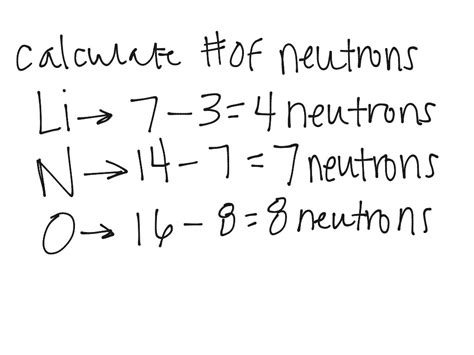 calculate # of neutrons
Li → 7 - 3 = 4 neutrons
N → 14 - 7 = 7 neutrons
O → 16 - 8 = 8 neutrons